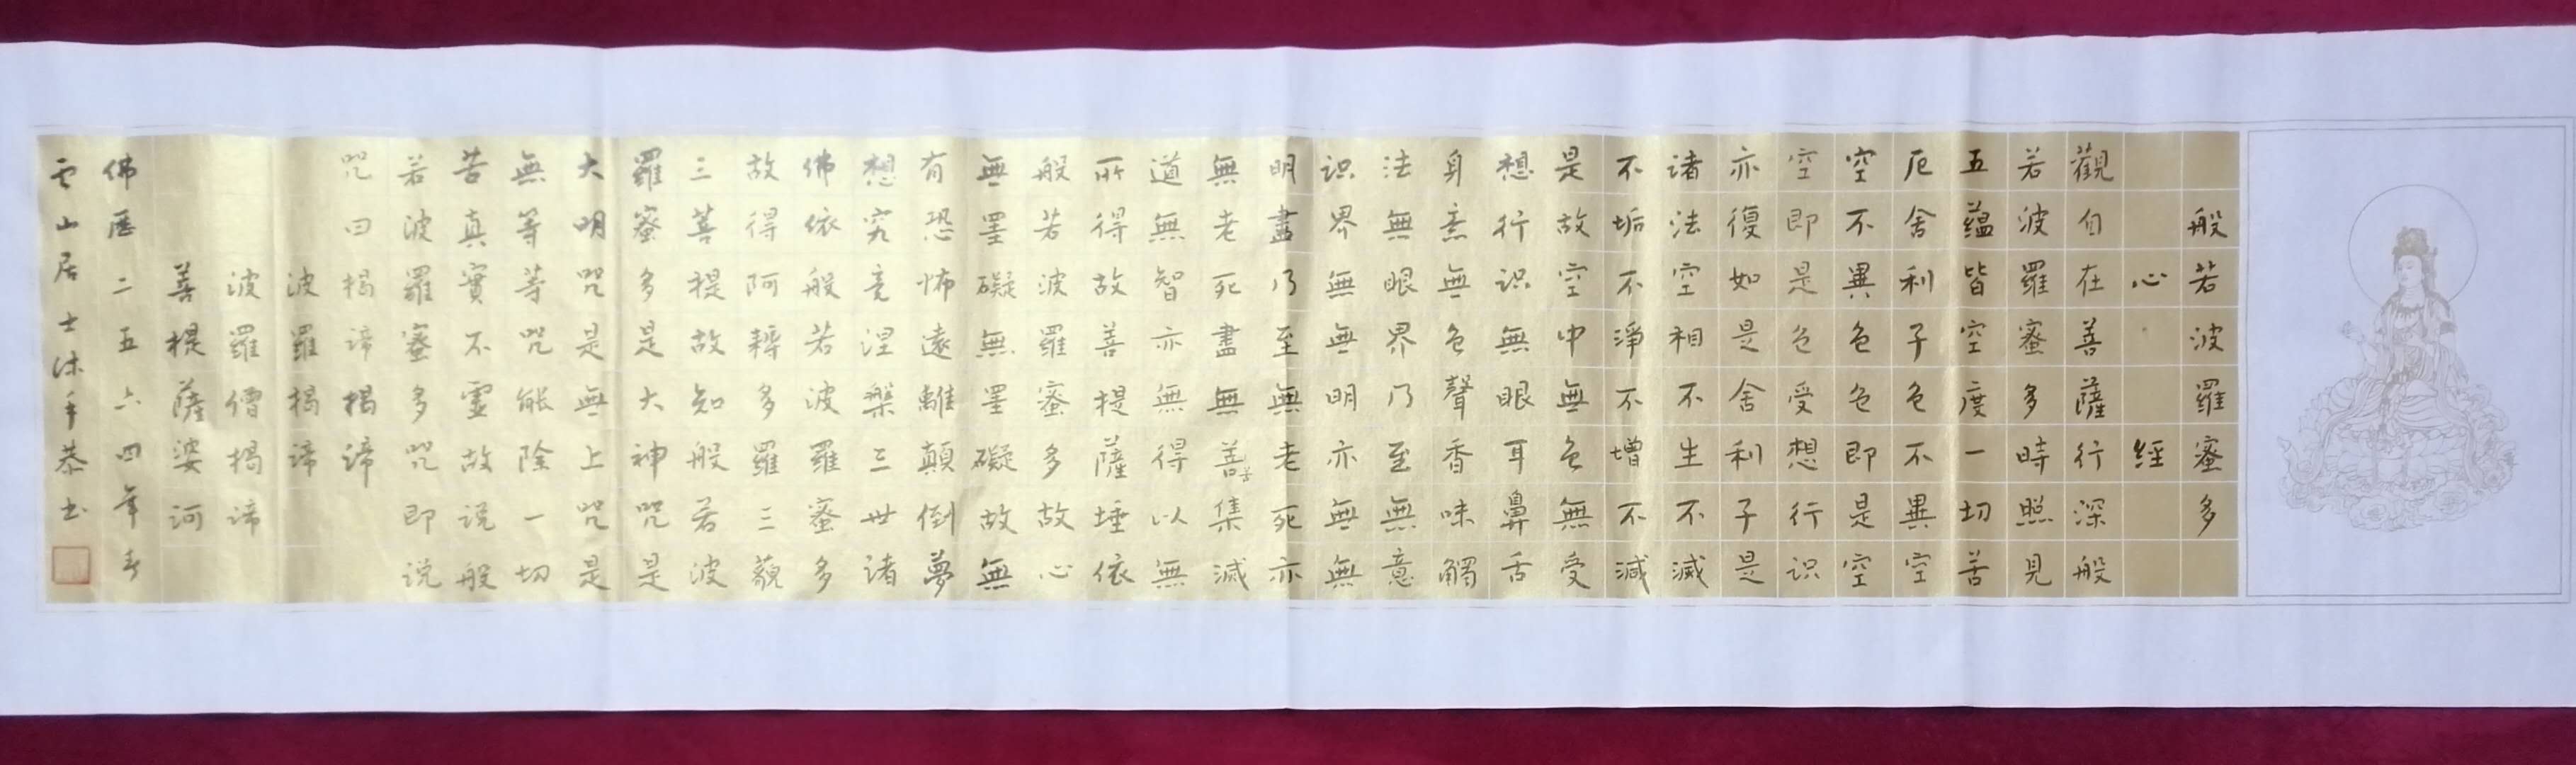 般若波羅蜜多
心經
觀自在菩薩行深般
若波羅蜜多時照見
五蘊皆空度一切苦
厄舍利子色不異空
空不異色色即是空
空即是色受想行识
亦復如是舍利子是
诸法空相不生不滅
不垢不淨不增不減
是故空中無色無受
想行识無眼耳鼻舌
身意無色聲香味觸
法無眼界乃至無意
识界無無明亦無無
明盡乃至無老死亦
無老死盡無菩苦集滅
道無智亦無得以無
所得故菩提薩埵依
般若波羅蜜多故心
無罣礙無罣礙故無
有恐怖遠離顛倒夢
想究竟涅槃三世诸
佛依般若波羅蜜多
故得阿耨多羅三藐
三菩提故知般若波
羅蜜多是大神咒是
大明咒是無上咒是
無等等咒能除一切
苦真實不虛故说般
若波羅蜜多咒即说
咒曰揭谛揭谛
波羅揭谛
波羅僧揭谛
菩提薩婆诃
佛曆二五六四年春
云山居士沐手恭书